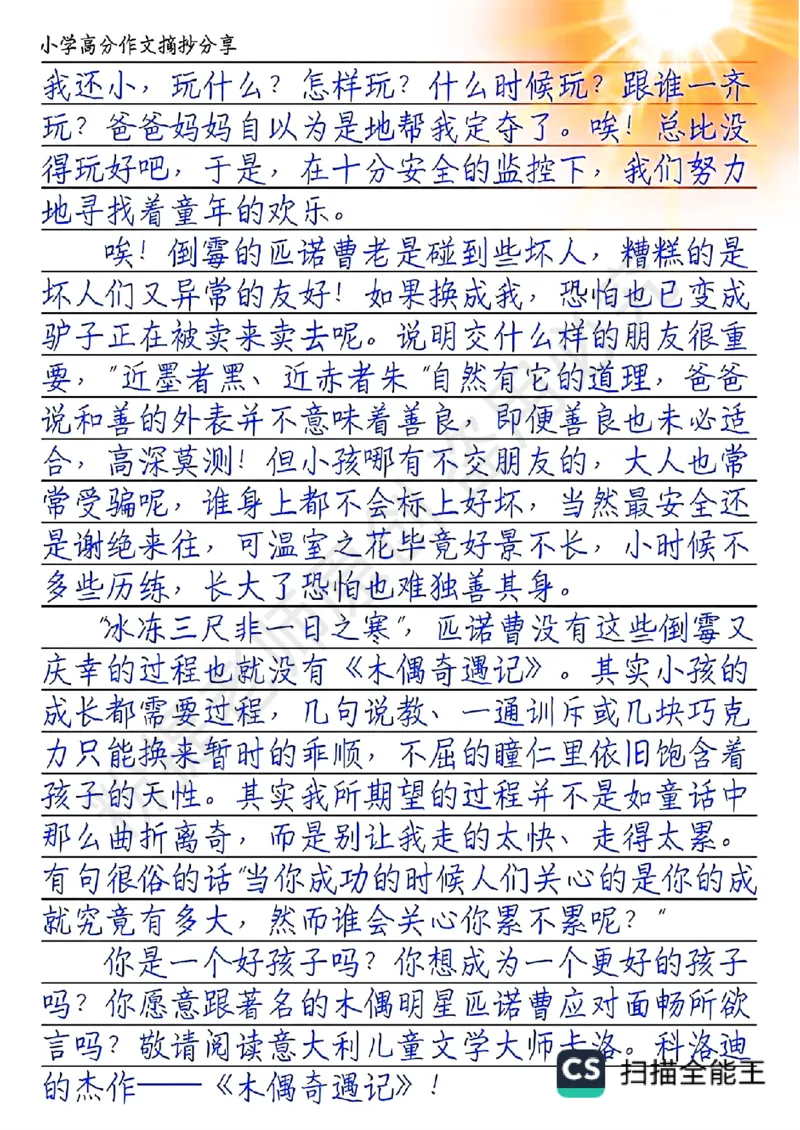 小学高分作文摘抄分享
我还小，玩什么？怎样玩？什么时候玩？跟谁一齐
玩？爸爸妈妈自以为是地帮我定夺了。唉！总比没
得玩好吧，于是，在十分安全的监控下，我们努力
地寻找着童年的欢乐。
唉！倒霉的匹诺曹老是碰到些坏人，糟糕的是
坏人们又异常的友好！如果换成我，恐怕也已变成
驴子正在被卖来卖去呢。说明交什么样的朋友很重
要，"近墨者黑、近赤者朱"自然有它的道理，爸爸
说和善的外表并不意味着善良，即便善良也未必适
合，高深莫测！但小孩哪有不交朋友的，大人也常
常受骗呢，谁身上都不会标上好坏，当然最安全还
是谢绝来往，可温室之花毕竟好景不长，小时候不
多些历练，长大了恐怕也难独善其身。
"冰冻三尺非一日之寒"，匹诺曹没有这些倒霉又
庆幸的过程也就没有《木偶奇遇记》。其实小孩的
成长都需要过程，几句说教、一通训斥或几块巧克
力只能换来暂时的乖顺，不屈的瞳仁里依旧饱含着
孩子的天性。其实我所期望的过程并不是如童话中
那么曲折离奇，而是别让我走的太快、走得太累。
有句很俗的话"当你成功的时候人们关心的是你的成
就究竟有多大，然而谁会关心你累不累呢？"
你是一个好孩子吗？你想成为一个更好的孩子
吗？你愿意跟著名的木偶明星匹诺曹应对面畅所欲
言吗？敬请阅读意大利儿童文学大师卡洛。科洛迪
的杰作——《木偶奇遇记》！
CS 扫描全能王